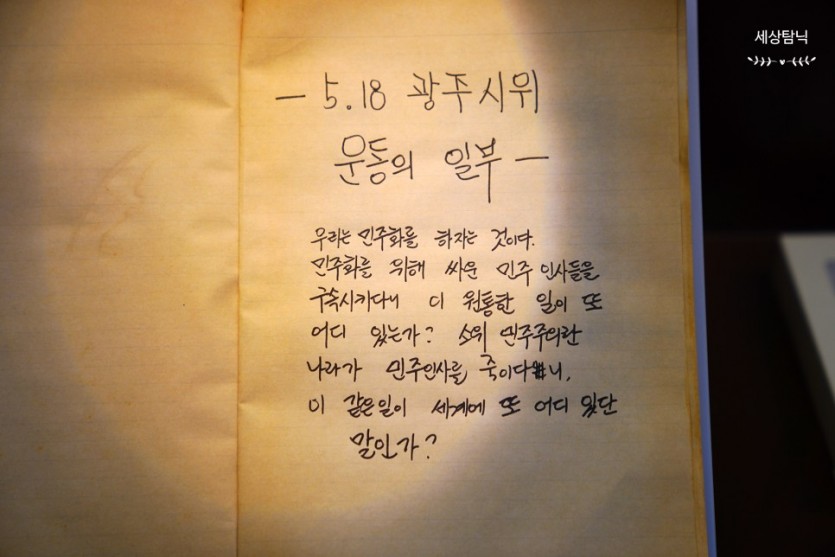 세상탐닉
- 5.18 광주시위
운동의 일부 -
우리는 민주화를 하자는 것이다.
민주화를 위해 싸운 민주 인사들을
구속시키다니 이 원통한 일이 또
어디 있는가? 소위 민주주의란
나라가 민주인사를 죽이다니,
이 같은일이 세계에 또 어디 있단
말인가?